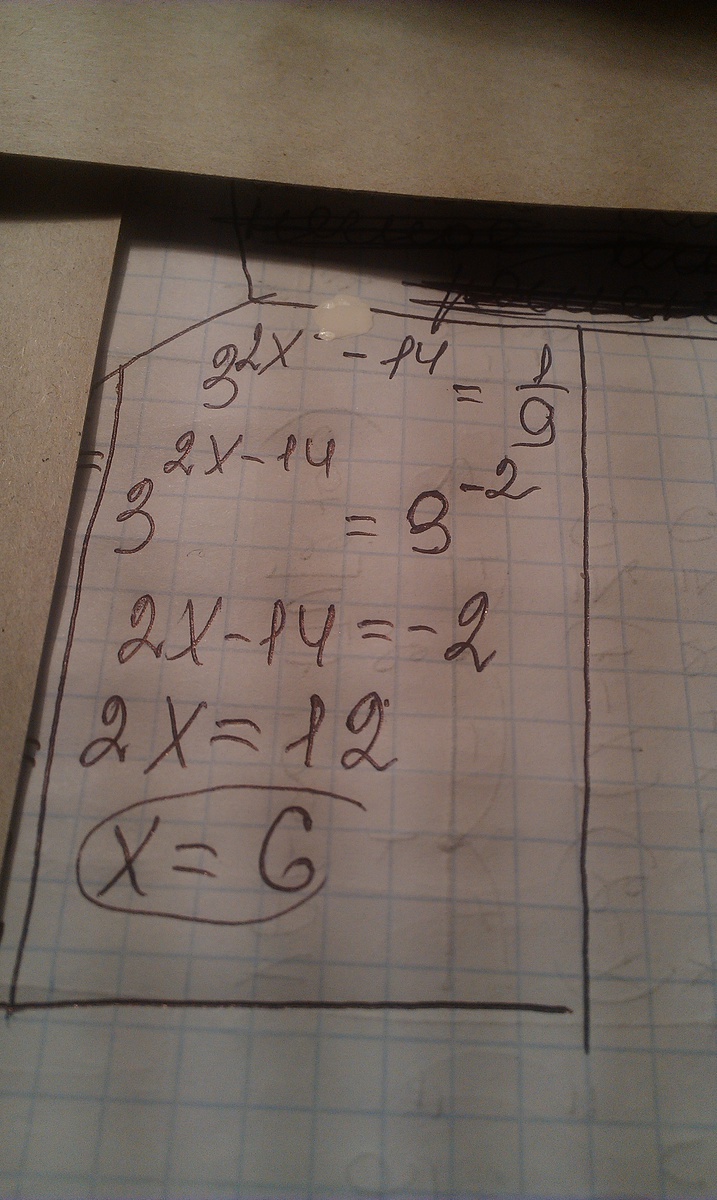 3^{2x-14} = \frac{1}{9}
3^{2x-14} = 3^{-2}
2x-14=-2
2x=12
x=6